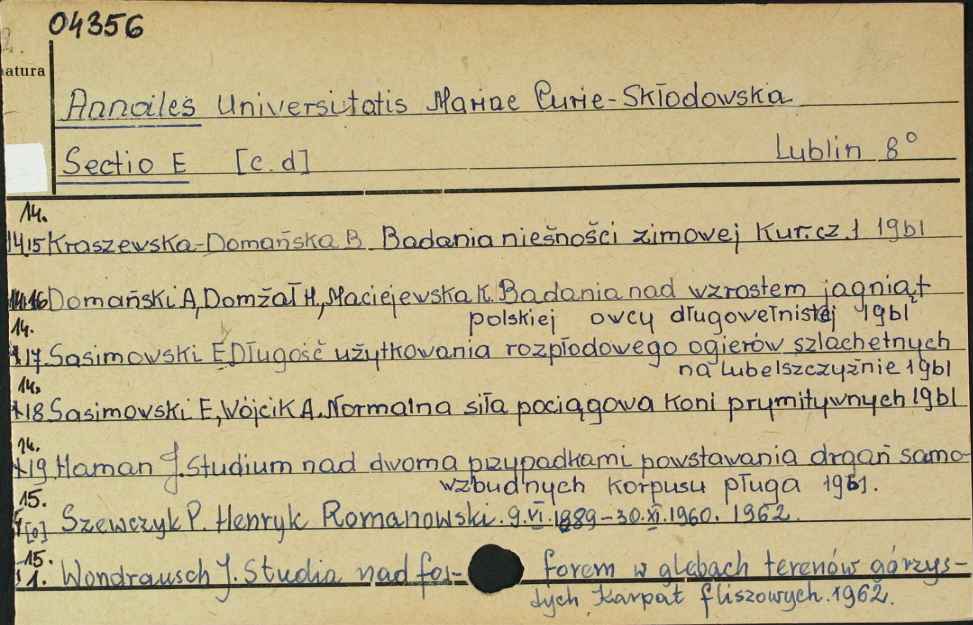 04356
2.
natura
Annales Universitatis Mariae Curie-Skłodowska
Sectio E [c.d] Lublin 8°
14.
15 Kraszewska-Domańska B. Badania nieśności zimowej kur.cz.1 1961
14.16 Domański A, Domżał H., Maciejewska K. Badania nad wzrostem jagniąt
polskiej owcy długowełnistej 1961
14.
17 Sasimowski E Długość użytkowania rozpłodowego ogierów szlachetnych
na Lubelszczyźnie 1961
14.
18 Sasimowski E, Wójcik A. Normalna siła pociągowa koni prymitywnych 1961
14.
19. Haman J. Studium nad dwoma przypadkami powstawania drgań samo-
wzbudnych korpusu pługa 1961.
15.
[0] Szewczyk P. Henryk Romanowski. 9.VI.1889-30.XI.1960. 1962.
15.
1. Wondrausch J. Studia nad fos- forem w glebach terenów górzys-
tych Karpat fliszowych. 1962.